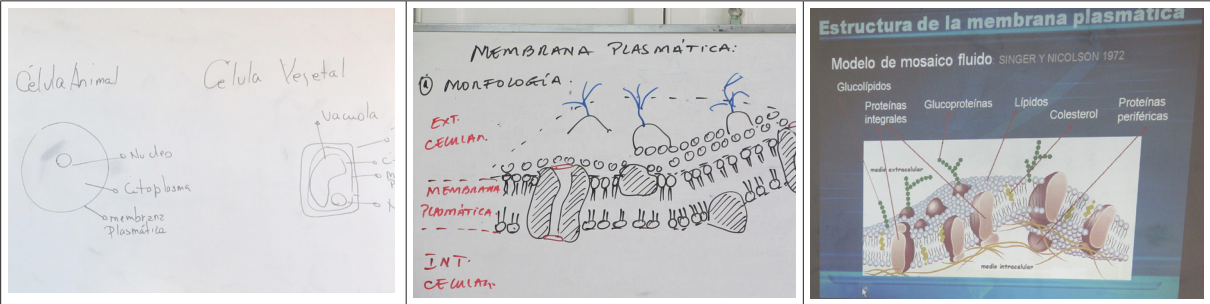 Célula Animal
Celula Vegetal
vacuola
Nucleo
Citoplasma
membrana
Plasmática
MEMBRANA PLASMÁTICA:
ⓐ MORFOLOGÍA.
EXT.
CELULAR.
MEMBRANA
PLASMÁTICA
INT.
CELULAR.
Estructura de la membrana plasmática
Modelo de mosaico fluido. SINGER Y NICOLSON 1972
Glucolípidos
Proteínas
integrales
Glucoproteínas
Lípidos
Colesterol
Proteínas
periféricas
medio extracelular
medio intracelular